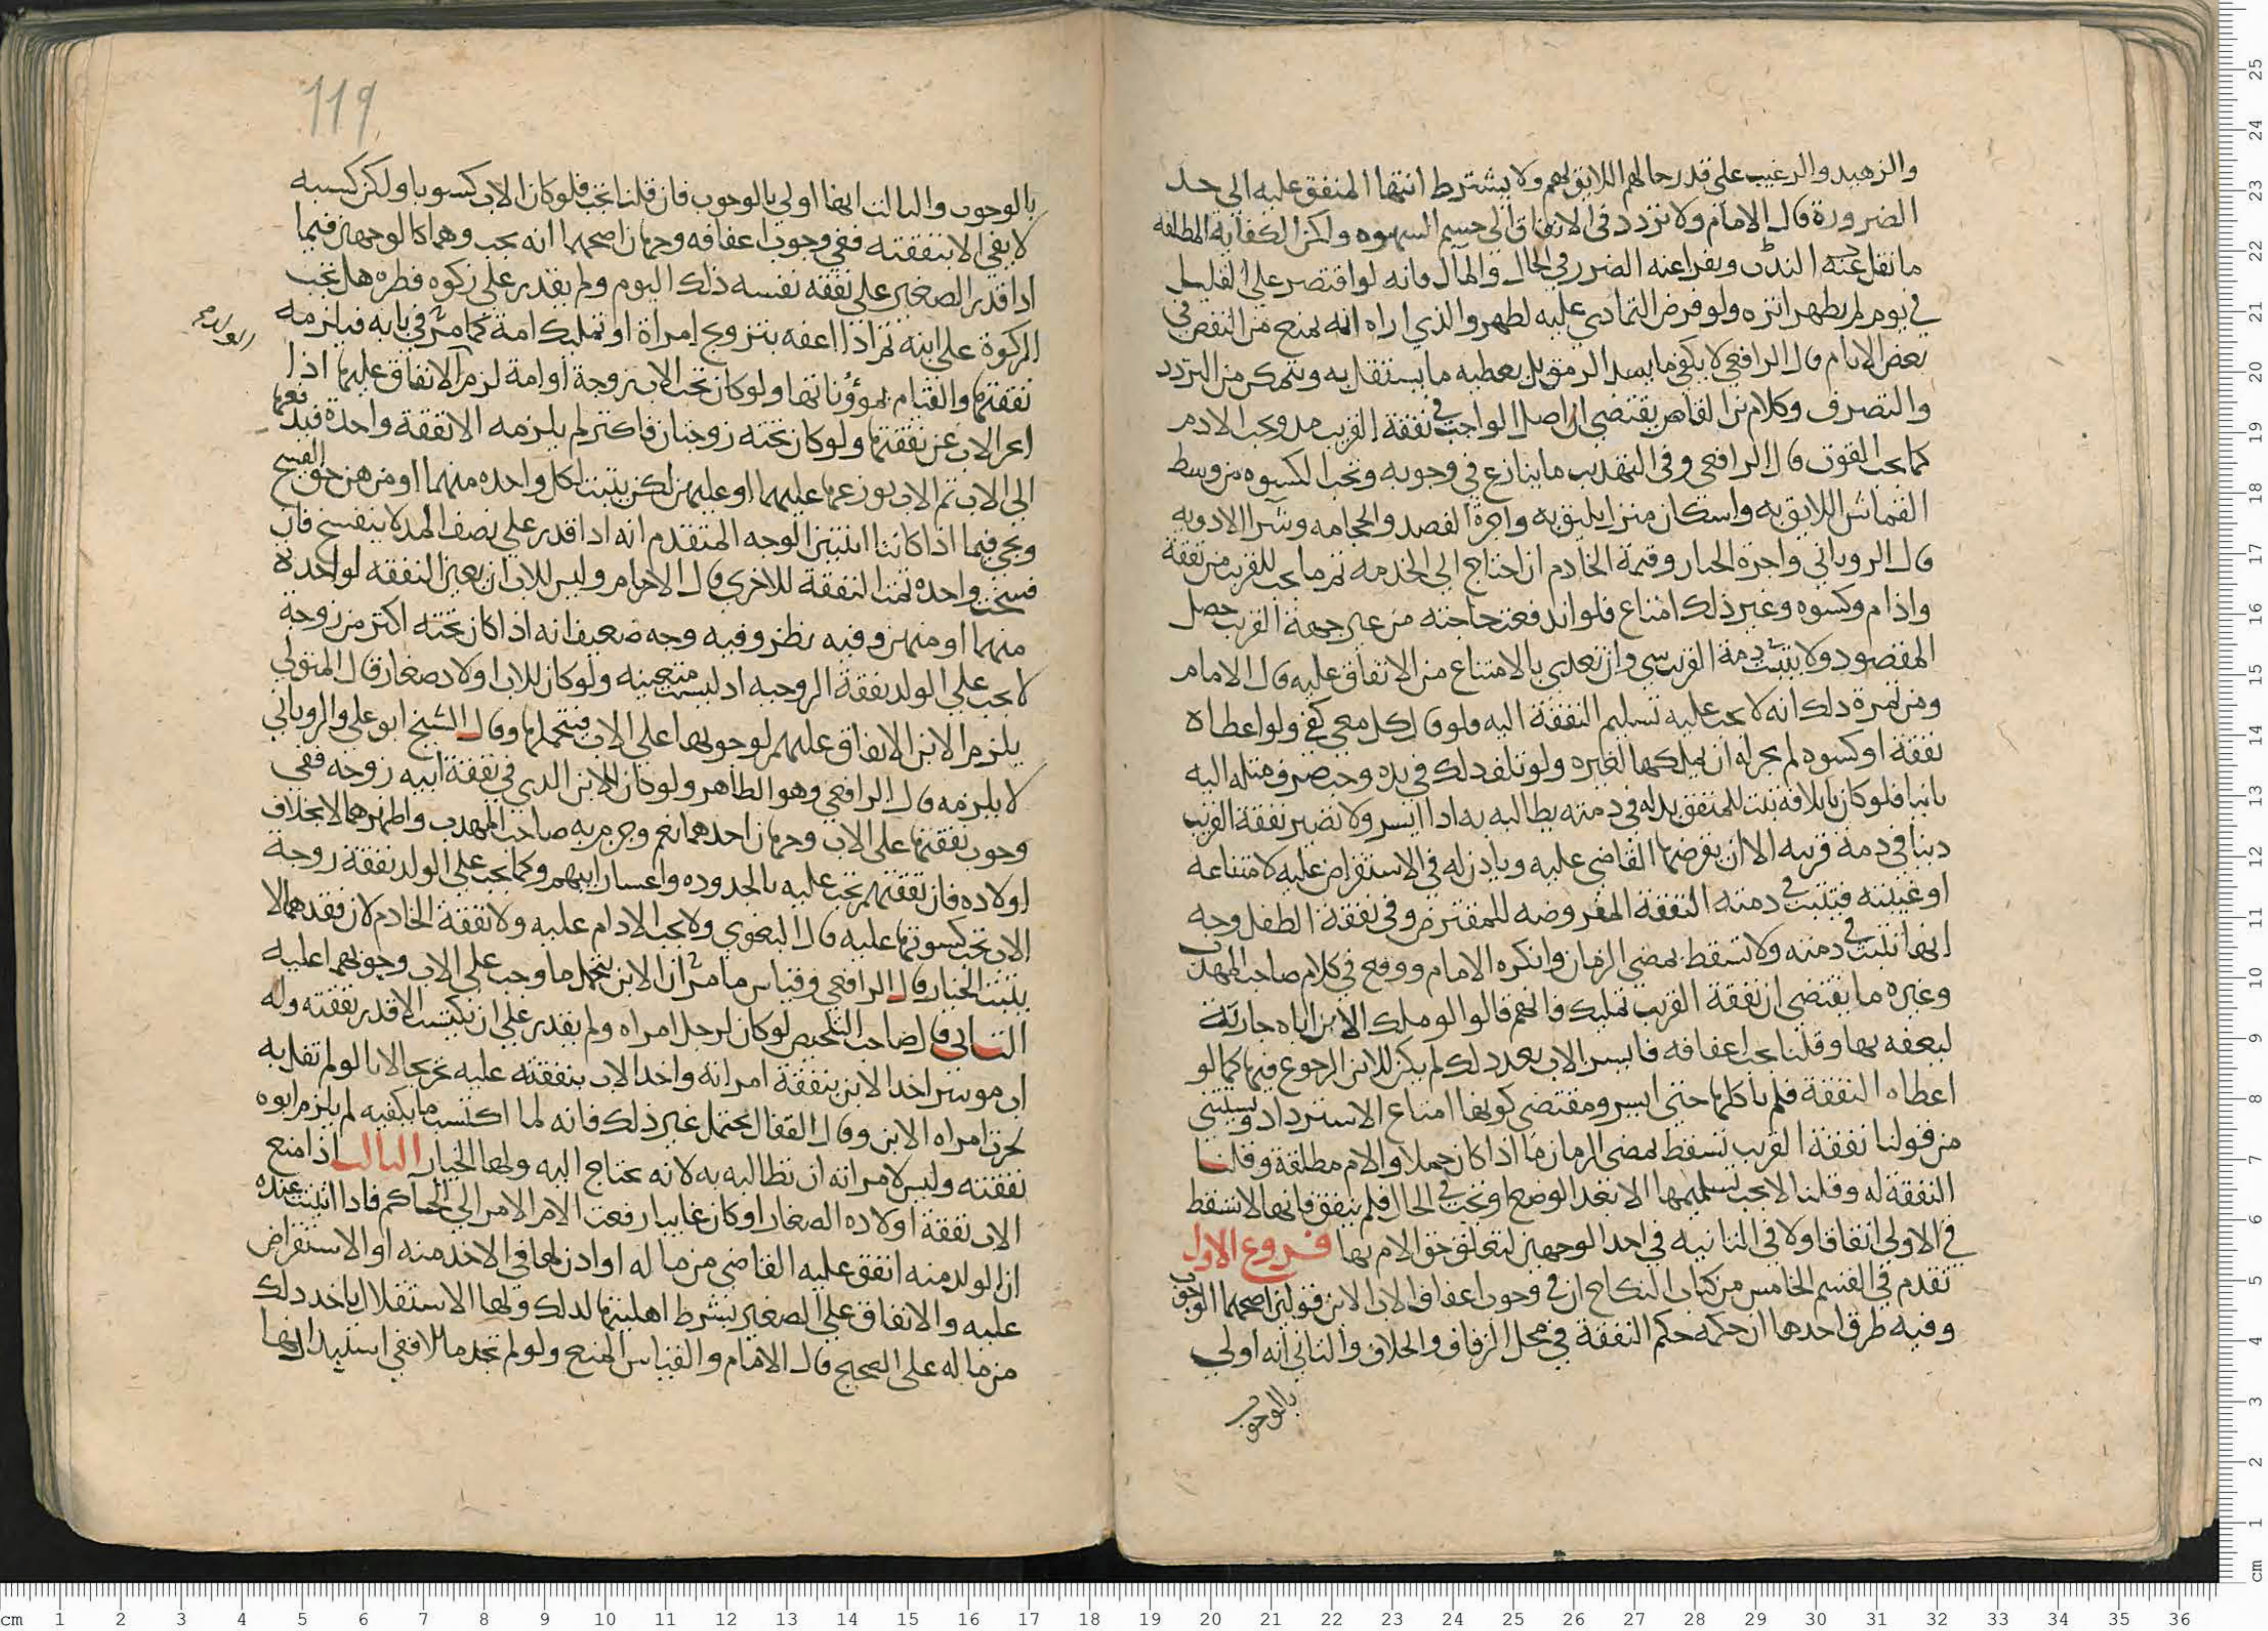 والزهيد والرغيب على قدر حالهم اللايق بهم ولا يشترط انتها المنفق عليه الى حد
الضرورة قال الامام ولا تردد في الانفاق الى حسم الشهوه ولكن الكفاية المطلقه
ما نقل عنه البدن ويدرا عنه الضرر في الحال والمآل فانه لو اقتصر على القليل
في يوم لم يظهر اثره ولو فرض التمادي عليه لظهر والذي اراه انه يمنع من النقص في
بعض الايام قال الرافعي لا يكفي ما يسد الرمق بل يعطيه ما يستقل به ويتمكن من التردد
والتصرف وكلام القاهر يقتضي ان اصل الواجب في نفقة القريب مد ويجب الادم
كما يجب القوت قال الرافعي وفي التهذيب ما ينازع في وجوبه وتجب الكسوه من وسط
القماش اللايق به واسكان منزل يليق به واجرة الفصد والحجامه وشرا الادويه
قال الروياني واجرة الختان وقيمة الخادم ان احتاج الى الخدمه ثم ما يجب للقريب من نفقة
وادام وكسوه وغير ذلك امتاع فلو اندفعت حاجته من غير جهة القريب حصل
المقصود ولا يثبت في ذمة القريب شي وان تعدى بالامتناع من الانفاق عليه قال الامام
ومن ثمرة ذلك انه لا يجب عليه تسليم النفقة اليه فلو قال كل معي كفى ولو اعطاه
نفقة او كسوه لم يجز له ان يملكها لغيره ولو تلف ذلك في يده وجب صرف مثله اليه
ثانيا فلو كان باتلافه ثبت للمنفق بدله في ذمته يطالبه به اذا ايسر ولا تصير نفقة القريب
دينا في ذمة قريبه الا ان يفرضها القاضي عليه وياذن له في الاستقراض عليه لامتناعه
او غيبته فيثبت في ذمته النفقة المفروضه للمقترض وفي نفقة الطفل وجه
انها تثبت في ذمته ولا تسقط بمضي الزمان وانكره الامام ووقع في كلام صاحب المهذب
وغيره ما يقتضي ان نفقة القريب تمليك فانهم قالوا لو ملك الابن اباه جارية
ليعفه بها وقلنا يجب اعفافه فايسر الاب بعد ذلك لم يكن للابن الرجوع فيها كما لو
اعطاه النفقة فلم ياكلها حتى ايسر ومقتضى كونها امتاع الاسترداد ويستثنى
من قولنا نفقة القريب تسقط بمضي الزمان ما اذا كان حملا والام مطلقة وقلنا
النفقة له وقلنا لا يجب تسليمها الا بعد الوضع او تجب في الحال فلم ينفق فانها لا تسقط
في الاولى اتفاقا ولا في الثانيه في احد الوجهين لتعلق حق الام بها فروع الاول
تقدم في القسم الخامس من كتاب النكاح ان في وجوب اعفاف الاب الابن قولين اصحهما الوجوب
وفيه طرق احدها ان حكمه حكم النفقة في محل الزفاف والخلاف والثاني انه اولى
بالوجوب
119
بالوجوب والثالث انها اولى بالوجوب فان قلنا تجب فلو كان الاب كسوبا ولكن كسبه
لا يفي الا بنفقته ففي وجوب اعفافه وجهان اصحهما انه يجب وهما كالوجهين فيما
اذا قدر الصغير على نفقة نفسه ذلك اليوم ولم يقدر على زكوه فطره هل تجب
الزكوة على ابنه ثم اذا اعفه بتزويج امراة او تمليك امة كما مر في بابه فيلزمه
نفقتها والقيام بمؤناتها ولو كان تحت الاب زوجة او امة لزم الانفاق عليها اذا
اعسر الاب عن نفقتها ولو كان تحته زوجتان فاكثر لم يلزمه الا نفقة واحدة فيدفعها
الى الاب ثم الاب يوزعها عليهما او عليهن لكن يثبت لكل واحده منهما او منهن حق الفسخ
ويجي فيما اذا كانتا اثنتين الوجه المتقدم انه اذا قدر على نصف المد لا ينفسخ فان
فسخت واحده تمت النفقة للاخرى قال الامام وليس للاب ان يعين النفقه لواحدة
منهما او منهن وفيه نظر وفيه وجه ضعيف انه اذا كان تحته اكثر من زوجة
لا يجب على الولد نفقة الزوجيه اذ ليست متعينه ولو كان للاب اولاد صغار قال المتولي
يلزم الابن الانفاق عليهم لوجوبها على الاب فيتحملها وقال الشيخ ابو علي والروياني
لا يلزمه قال الرافعي وهو الظاهر ولو كان للابن الذي في نفقة ابيه زوجه ففي
وجوب نفقتها على الاب وجهان احدهما نعم وجزم به صاحب المهذب واظهرهما لا بخلاف
اولاده فان نفقتهم تجب عليه بالجدوده واعسار ابيهم وكما تجب على الولد نفقة زوجة
الاب تجب كسوتها عليه قال البغوي ولا يجب الادام عليه ولا نفقة الخادم لان فقدهما لا
يثبت الخيار قال الرافعي وقياس ما مر ان الابن يتحمل ما وجب على الاب وجوبهما عليه
الثاني قال صاحب التلخيص لو كان لرجل امراه ولم يقدر على ان يكتسب الا قدر نفقته وله
اب موسر اخذ الابن بنفقة امراته واخذ الاب بنفقته عليه تخريجا لانا لو لم نقل به
لحرت امراه الابن وقال القفال يحتمل غير ذلك فانه لما اكتسب ما يكفيه لم يلزم ابوه
نفقته وليس لامراته ان تطالبه به لانه يحتاج اليه ولها الخيار الثالث اذا منع
الاب نفقة اولاده الصغار او كان غايبا رفعت الام الامر الى الحاكم فاذا اثبتت عنده
ان الولد منه انفق عليه القاضي من ماله او اذن لها في الاخذ منه او الاستقراض
عليه والانفاق على الصغير بشرط اهليتها لذلك ولها الاستقلال باخذ ذلك
من ماله على الصحيح قال الامام والقياس المنع ولو لم تجد مالا ففي استبدادها